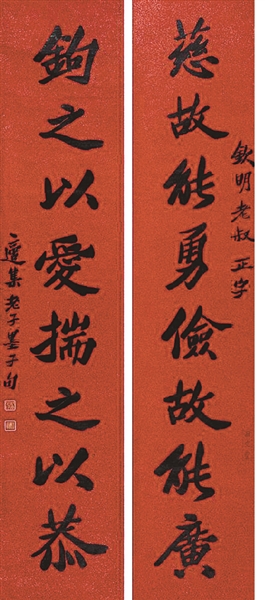 欽明老叔正字
慈故能勇儉故能廣
鉤之以愛揣之以恭
二適集老子墨子句